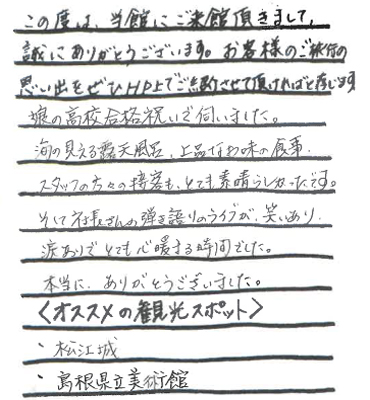 この度は、当館にご来館頂きまして、
誠にありがとうございます。お客様のご旅行の
思い出をぜひHP上でご紹介させて頂ければと存じます
娘の高校合格祝いで伺いました。
海の見える露天風呂、上品なお味の食事、
スタッフの方々の接客も、とても素晴らしかったです。
そして社長さんの弾き語りのライブが、笑いあり、
涙ありでとても心暖まる時間でした。
本当に、ありがとうございました。
〈オススメの観光スポット〉
・松江城
・島根県立美術館